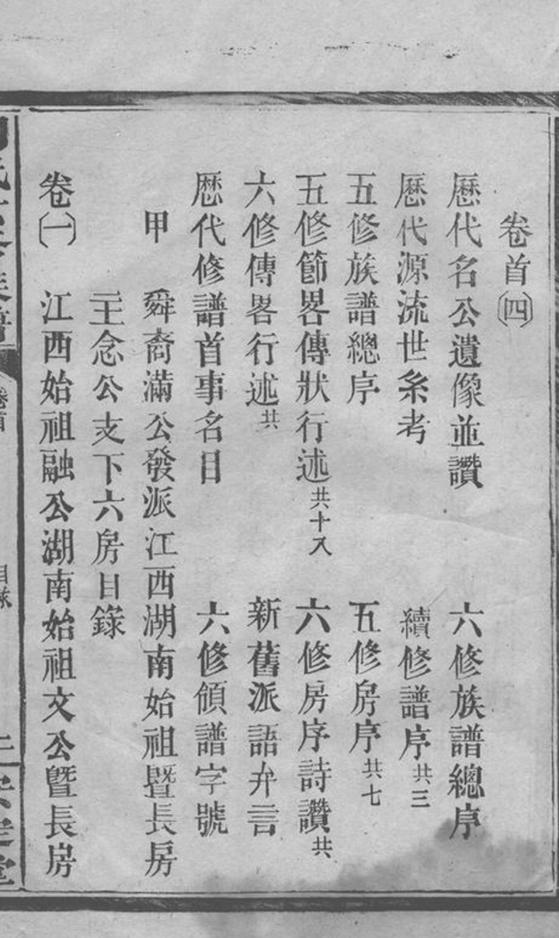 卷首㈣
歷代名公遺像並讚 六修族譜總序
歷代源流世系考 續修譜序共三
五修族譜總序 五修房序共七
五修節畧傳狀行述共十八 六修房序詩讚共
六修傳畧行述共 新舊派語弁言
歷代修譜首事名目 六修領譜字號
甲 舜裔滿公發派江西湖南始祖暨長房
二王念公支下六房目錄
卷㈠ 江西始祖融公湖南始祖文公暨長房
卷首 目錄